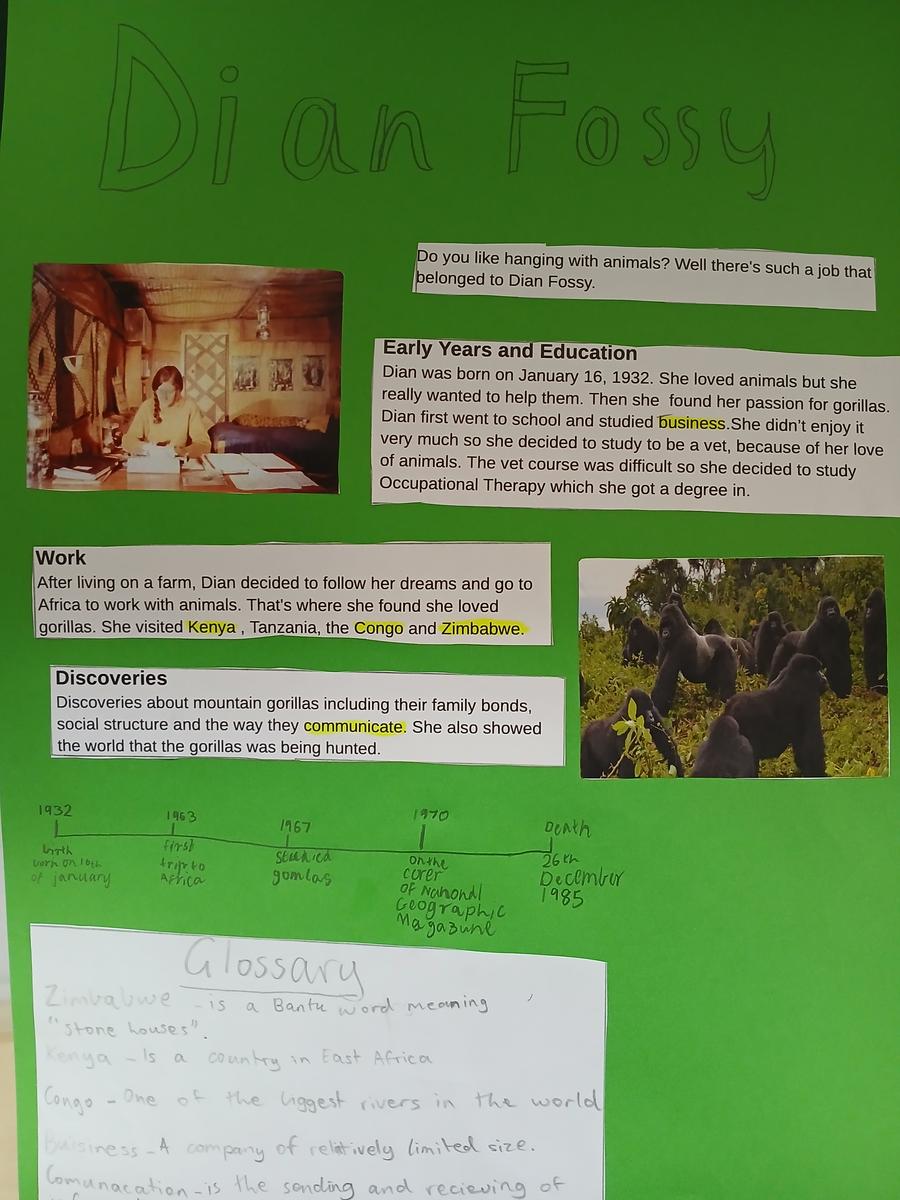 Dian Fossy
Do you like hanging with animals? Well there's such a job that
belonged to Dian Fossy.
Early Years and Education
Dian was born on January 16, 1932. She loved animals but she
really wanted to help them. Then she found her passion for gorillas.
Dian first went to school and studied business.She didn't enjoy it
very much so she decided to study to be a vet, because of her love
of animals. The vet course was difficult so she decided to study
Occupational Therapy which she got a degree in.
Work
After living on a farm, Dian decided to follow her dreams and go to
Africa to work with animals. That's where she found she loved
gorillas. She visited Kenya , Tanzania, the Congo and Zimbabwe.
Discoveries
Discoveries about mountain gorillas including their family bonds,
social structure and the way they communicate. She also showed
the world that the gorillas was being hunted.
1932
birth
born on 16th
of january
1963
first
trip to
Africa
1967
studied
1970
on the
of National
Geographic
Death
26th
December
1985
Glossary
Zimbabwe - is a Bantu word meaning
"stone houses".
Kenya - Is a country in East Africa
Congo - One of the biggest rivers in the world
Buisiness - A company of relatively limited size.
Comunacation - is the sending and recieving of